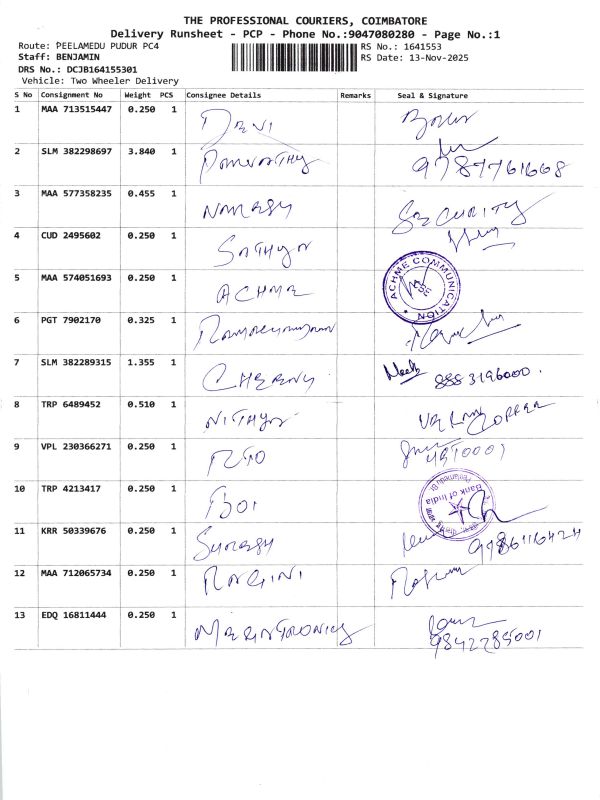 THE PROFESSIONAL COURIERS, COIMBATORE
Delivery Runsheet - PCP - Phone No.:9047080280 - Page No.:1
Route: PEELAMEDU PUDUR PC4 RS No.: 1641553
Staff: BENJAMIN RS Date: 13-Nov-2025
DRS No.: DCJB164155301
Vehicle: Two Wheeler Delivery
S No Consignment No Weight PCS Consignee Details Remarks Seal & Signature
1 MAA 713515447 0.250 1 DEVI
2 SLM 382298697 3.840 1 9787761668
3 MAA 577358235 0.455 1 NAMESH SECURITY
4 CUD 2495602 0.250 1 SATHYA
5 MAA 574051693 0.250 1 ACHME ACHME COMMUNICATION
6 PGT 7902170 0.325 1
7 SLM 382289315 1.355 1 CHERNY 8883196000.
8 TRP 6489452 0.510 1 NITHYA COPPER
9 VPL 230366271 0.250 1 RTO
10 TRP 4213417 0.250 1 BOI Bank of India
11 KRR 50339676 0.250 1 SURESH
12 MAA 712065734 0.250 1 RAGINI
13 EDQ 16811444 0.250 1 9842285001